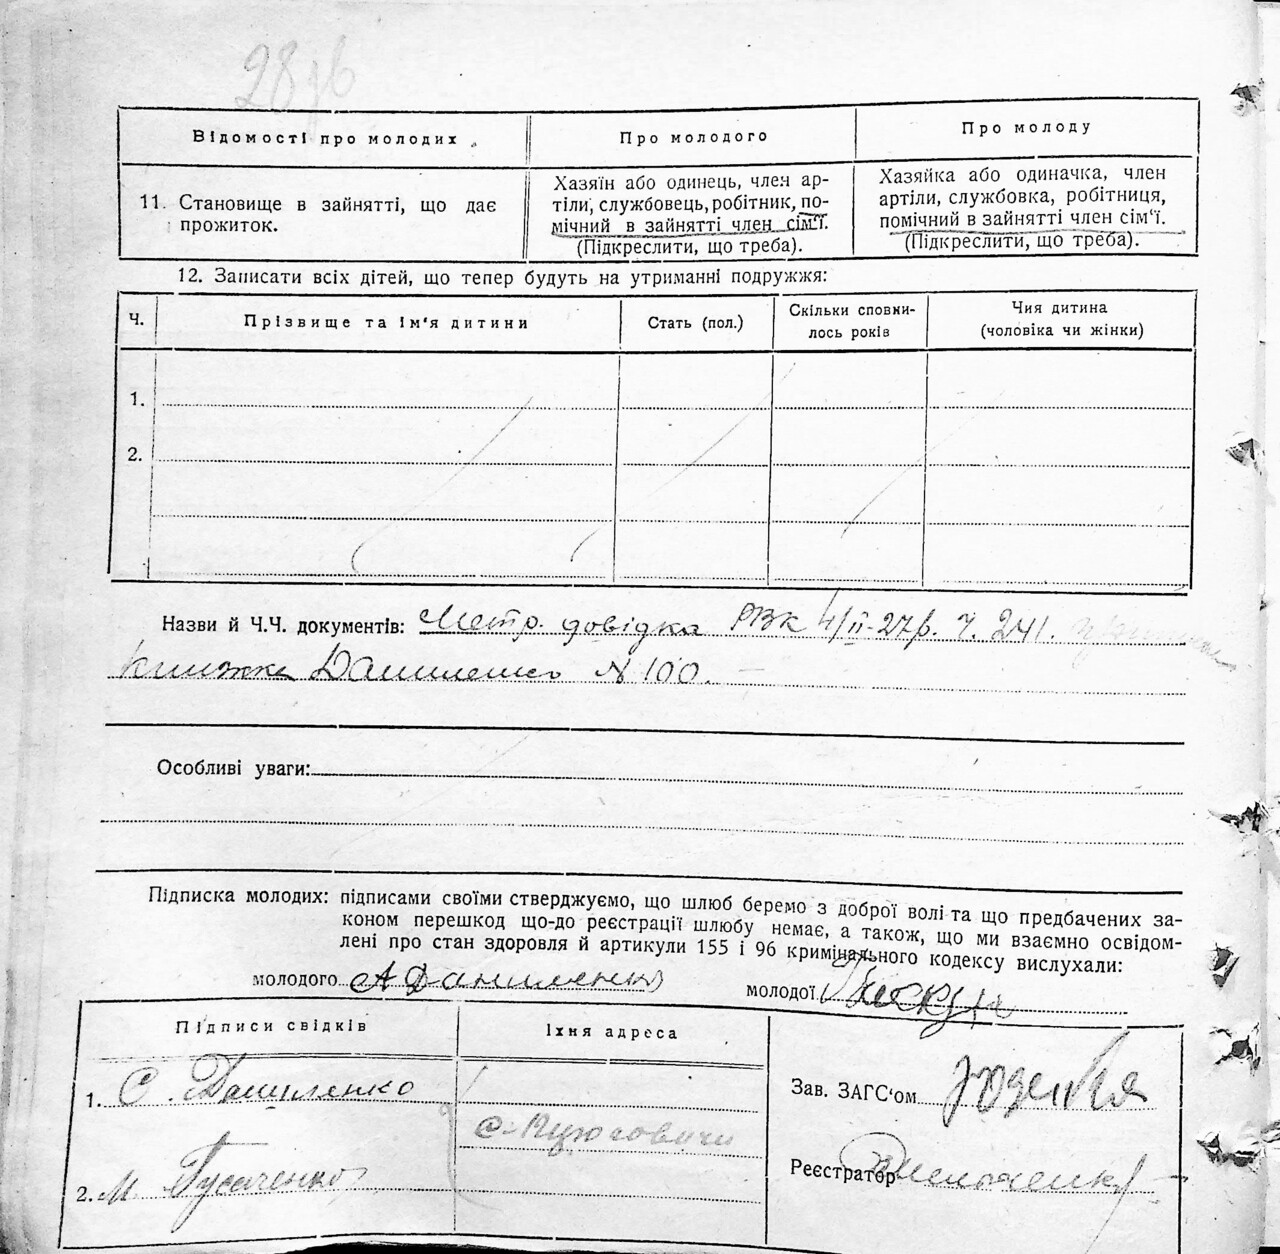 28зв
Відомості про молодих
Про молодого
Про молоду
11. Становище в зайнятті, що дає
прожиток.
Хазяїн або одинець, член ар-
тіли, службовець, робітник, по-
мічний в зайнятті член сім'ї.
(Підкреслити, що треба).
Хазяйка або одиначка, член
артіли, службовка, робітниця,
помічний в зайнятті член сім'ї.
(Підкреслити, що треба).
12. Записати всіх дітей, що тепер будуть на утриманні подружжя:
Ч.
Прізвище та ім'я дитини
Стать (пол.)
Скільки сповни-
лось років
Чия дитина
(чоловіка чи жінки)
1.
2.
Назви й Ч.Ч. документів: Метр. довідка РВК 4/II-27р. Ч. 241.
книжка Даниленко №100.
Особливі уваги:
Підписка молодих: підписами своїми стверджуємо, що шлюб беремо з доброї волі та що предбачених за-
коном перешкод що-до реєстрації шлюбу немає, а також, що ми взаємно освідом-
лені про стан здоровля й артикули 155 і 96 кримінального кодексу вислухали:
молодого А Даниленко
молодої
Підписи свідків
Їхня адреса
1. С. Даниленко
2. М. Гусаченко
Зав. ЗАГС'ом
Реєстратор